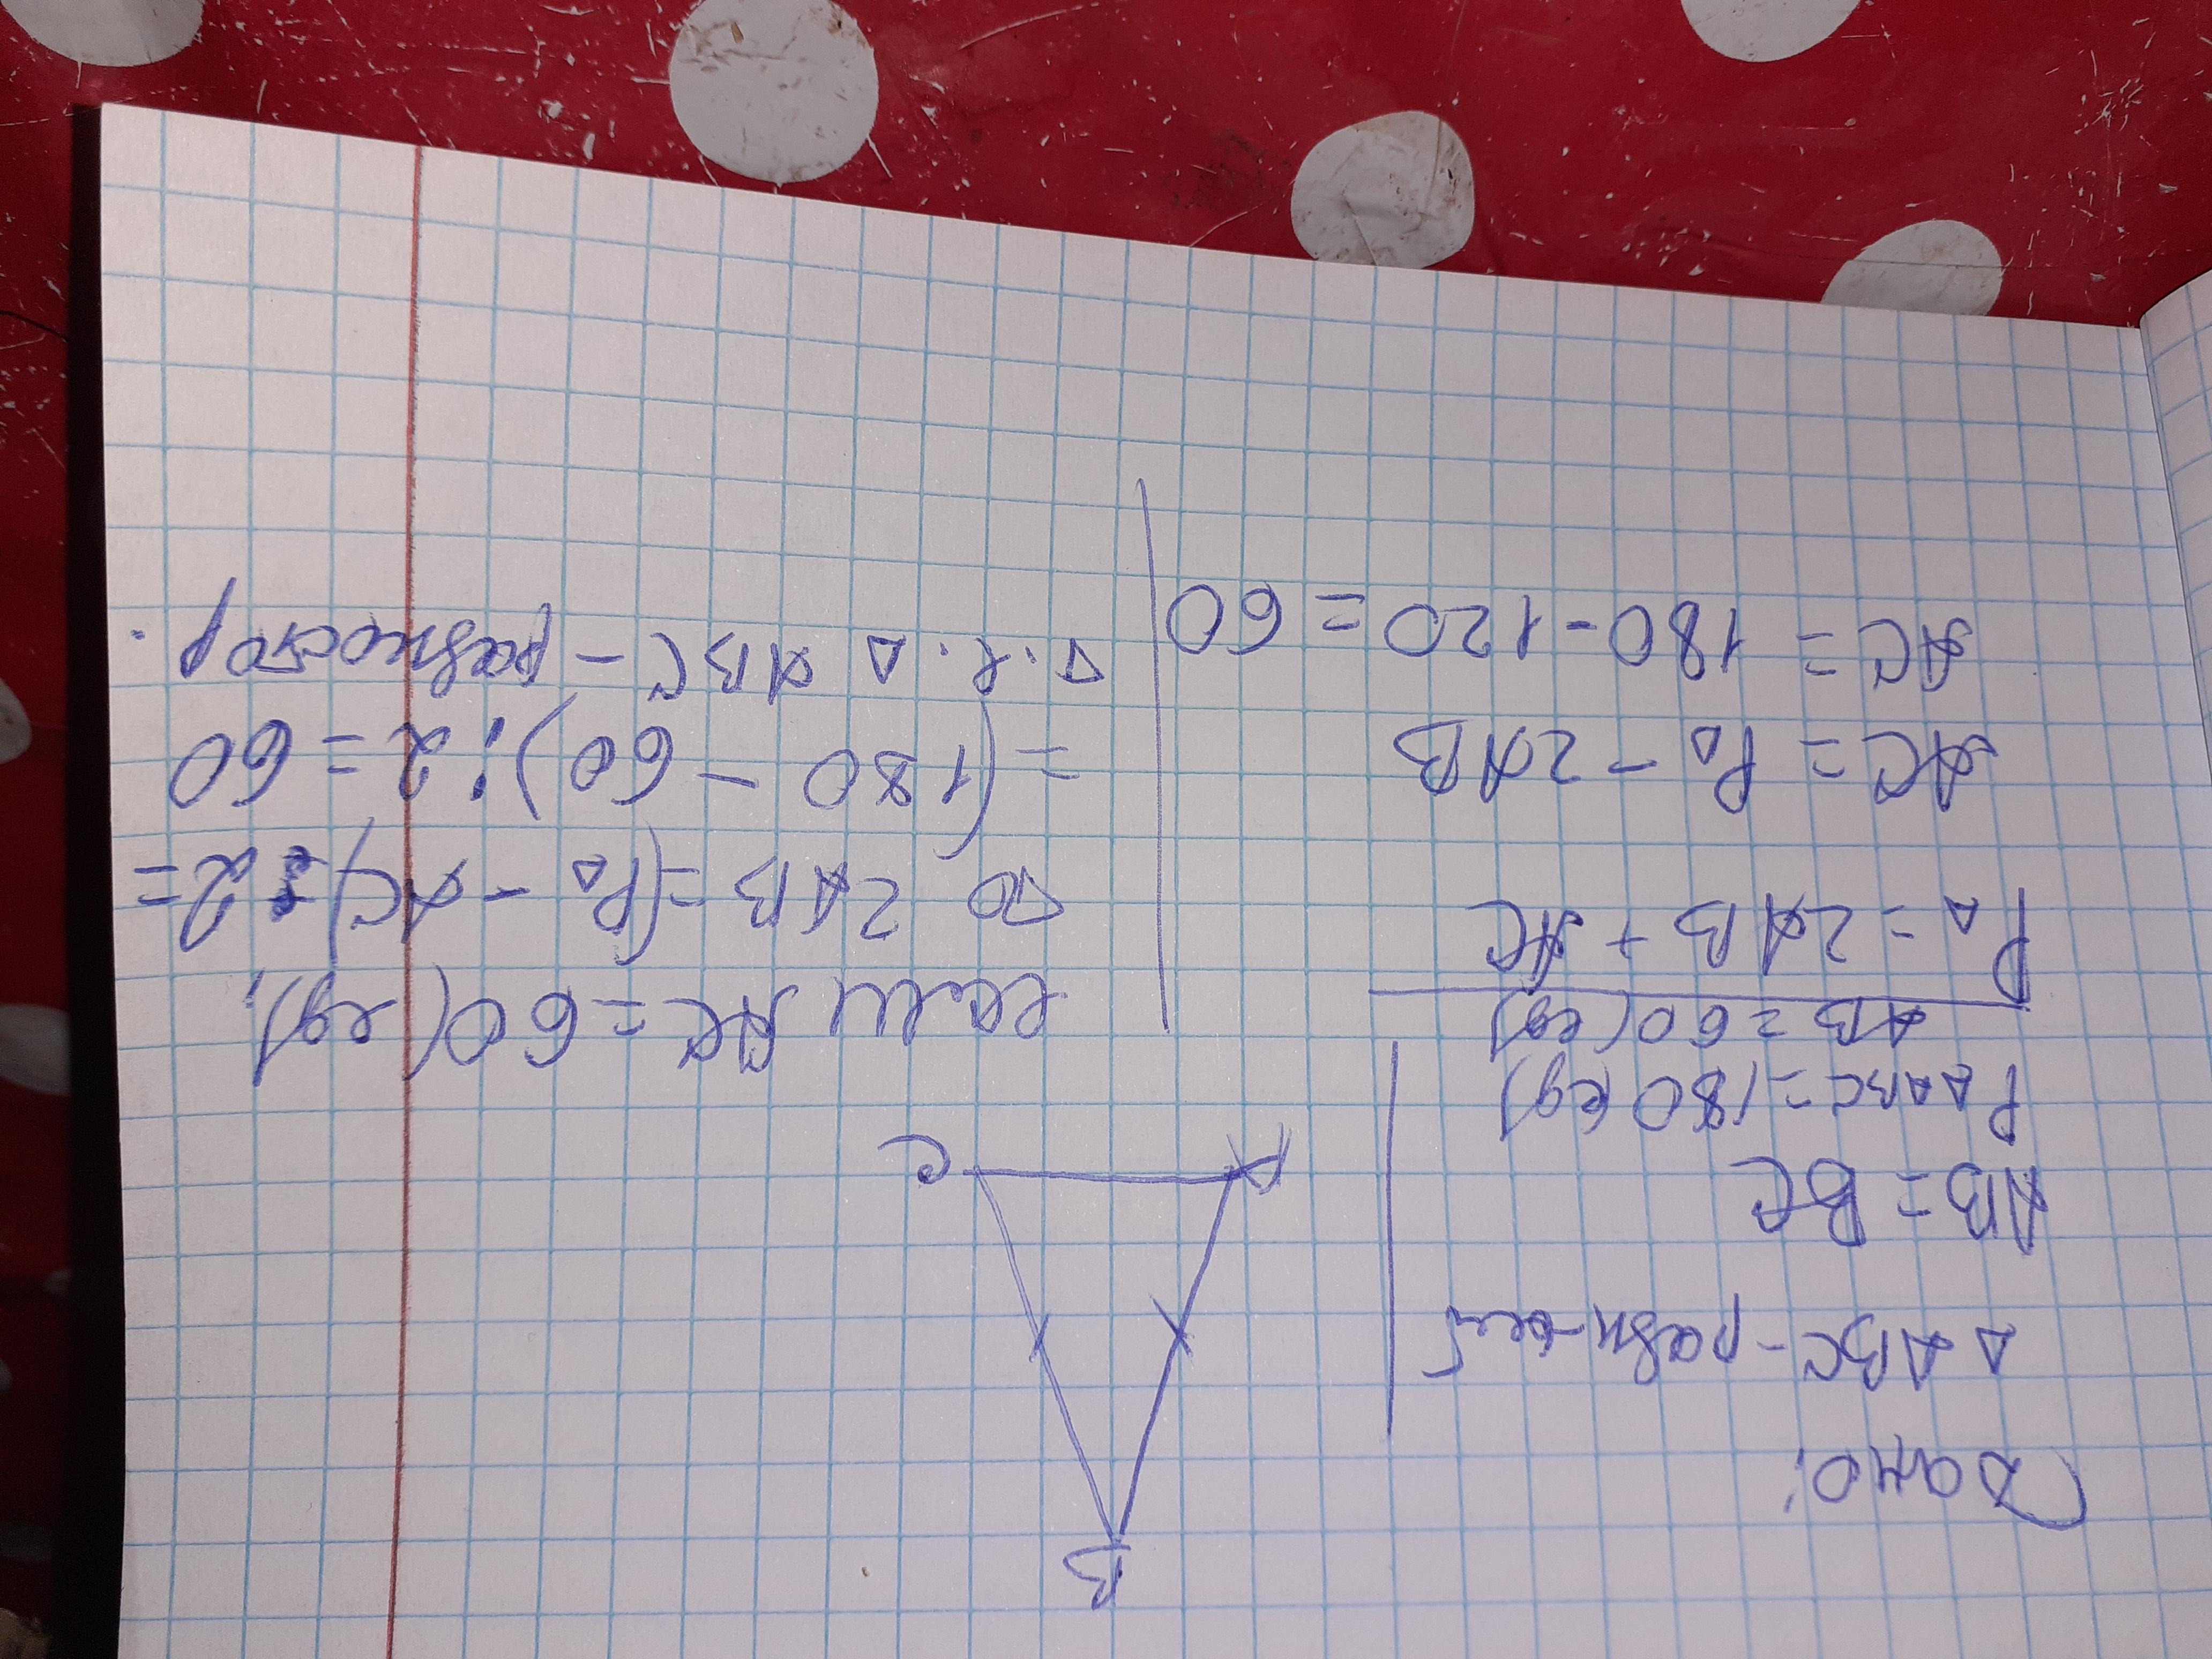 Дано:
Δ ABC - равн-ый
AB = BC
PΔABC = 180 (ед)
AB = 60 (ед)
PΔ = 2AB + AC
AC = PΔ - 2AB
AC = 180 - 120 = 60
B
A
C
если AC = 60 (ед),
то 2AB = (PΔ - AC) : 2 =
= (180 - 60) : 2 = 60
т.е. Δ ABC - равностор.